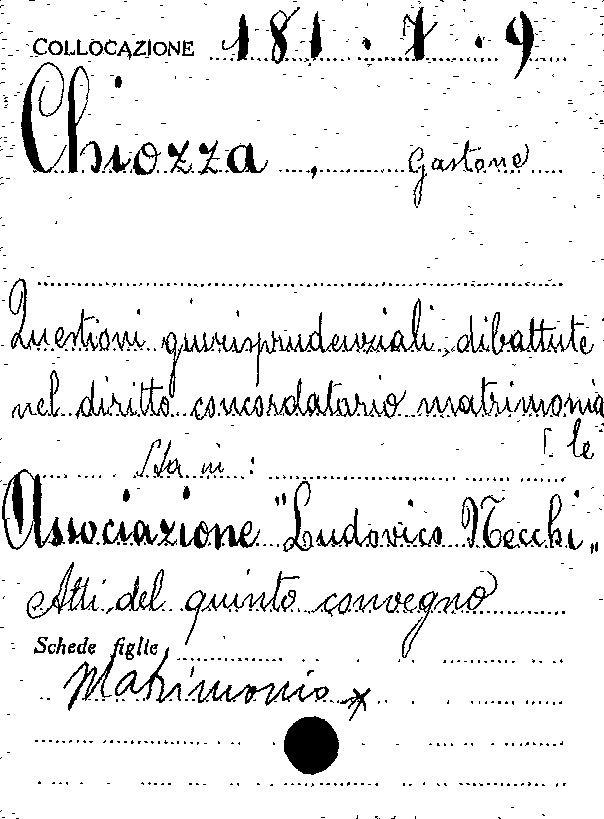 COLLOCAZIONE 181.7.9
Chiozza, Gastone
Questioni giurisprudenziali dibattute
nel diritto concordatario matrimonia
[le
Sta in:
Associazione "Ludovico Necchi„
Atti del quinto convegno
Schede figlie
Matrimonio x